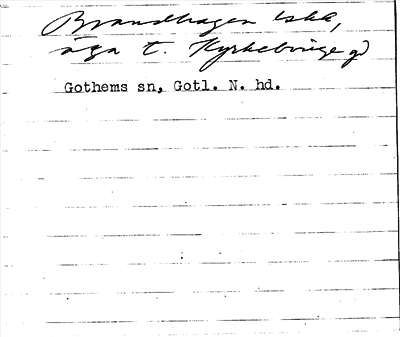 Brandhagen
äga t. Kyrkebinge gd
Gothems sn, Gotl. N. hd.